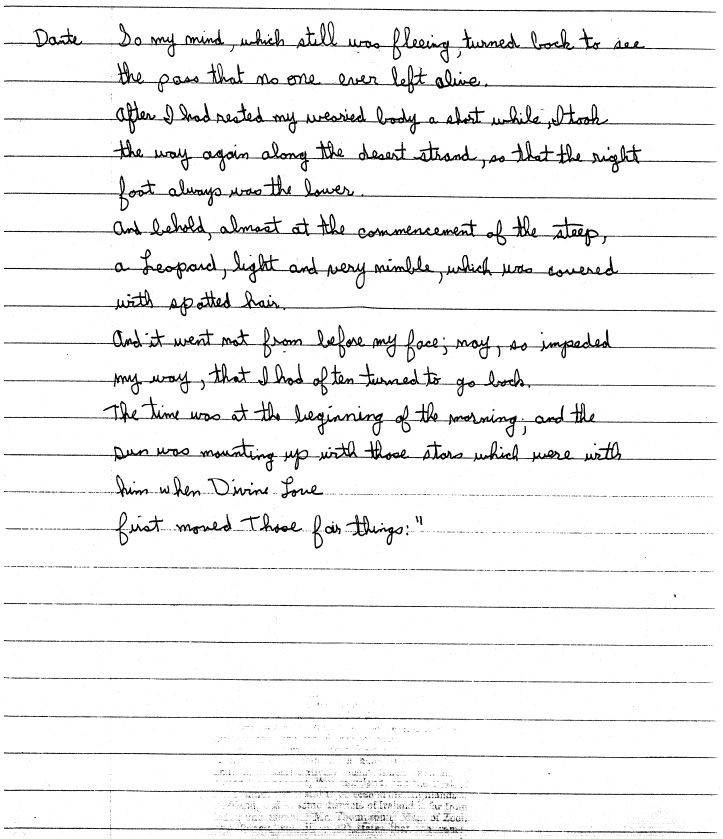 Dante So my mind, which still was fleeing, turned back to see
the pass that no one ever left alive.
After I had rested my wearied body a short while, I took
the way again along the desert strand, so that the right
foot always was the lower.
And behold, almost at the commencement of the steep,
a Leopard, light and very nimble, which was covered
with spotted hair.
And it went not from before my face; nay, so impeded
my way, that I had often turned to go back.
The time was at the beginning of the morning; and the
sun was mounting up with those stars which were with
him when Divine Love
first moved Those fair things:"
of Ireland is far from
Mr. Thompson, of Zool.